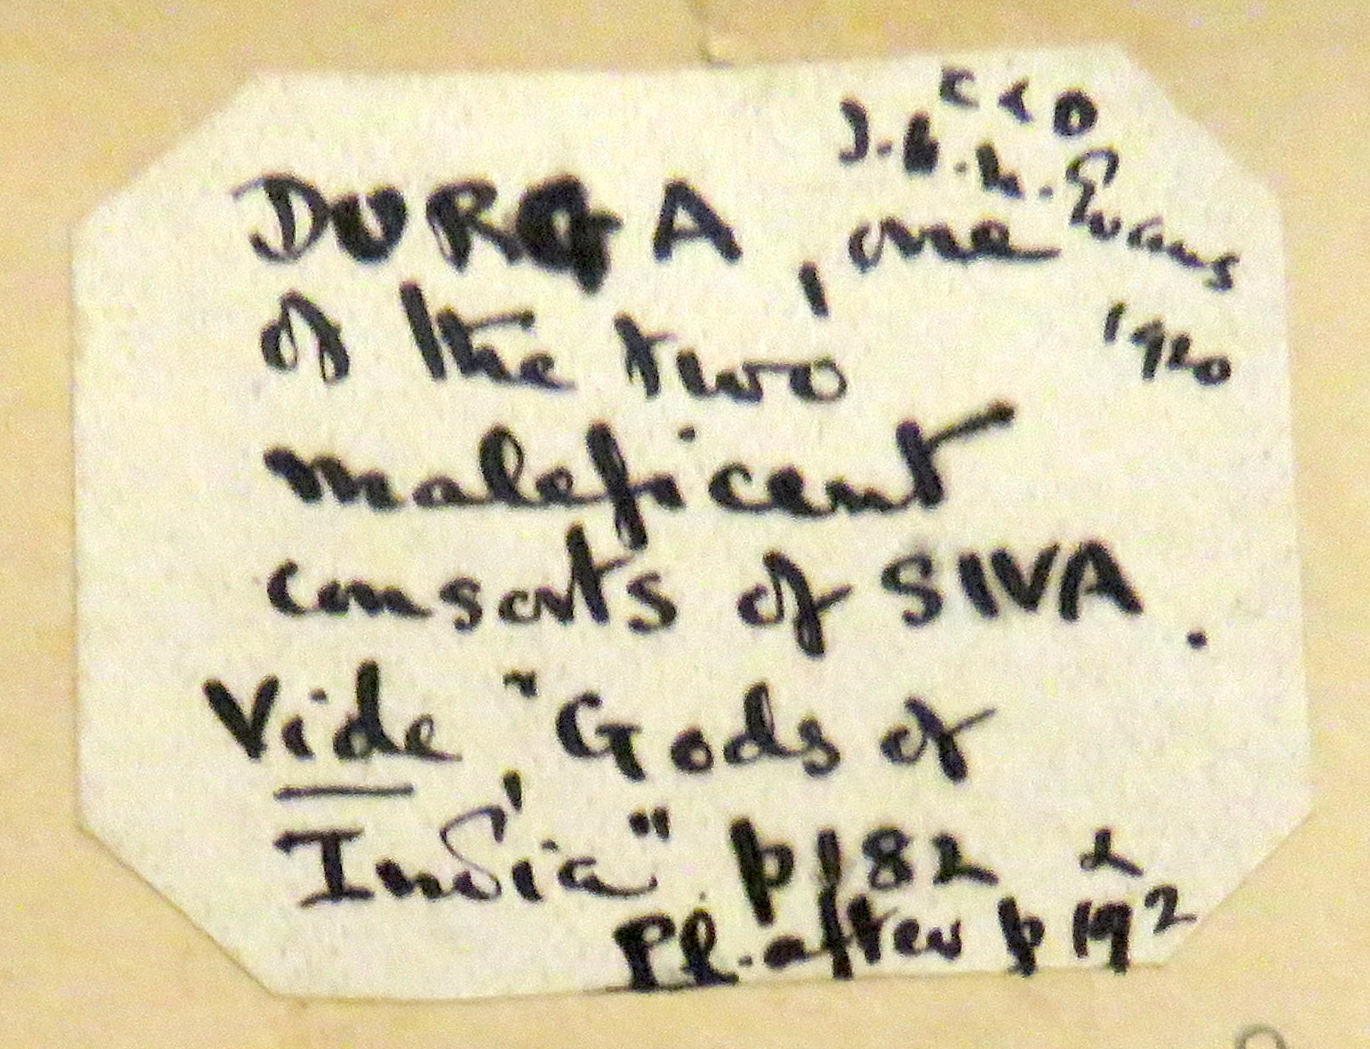 C & D
J. H. h. Evans
1920
DURGA, one
of the two
maleficent
consorts of SIVA.
Vide, "Gods of
India" p 182 &
Pl. after p 192